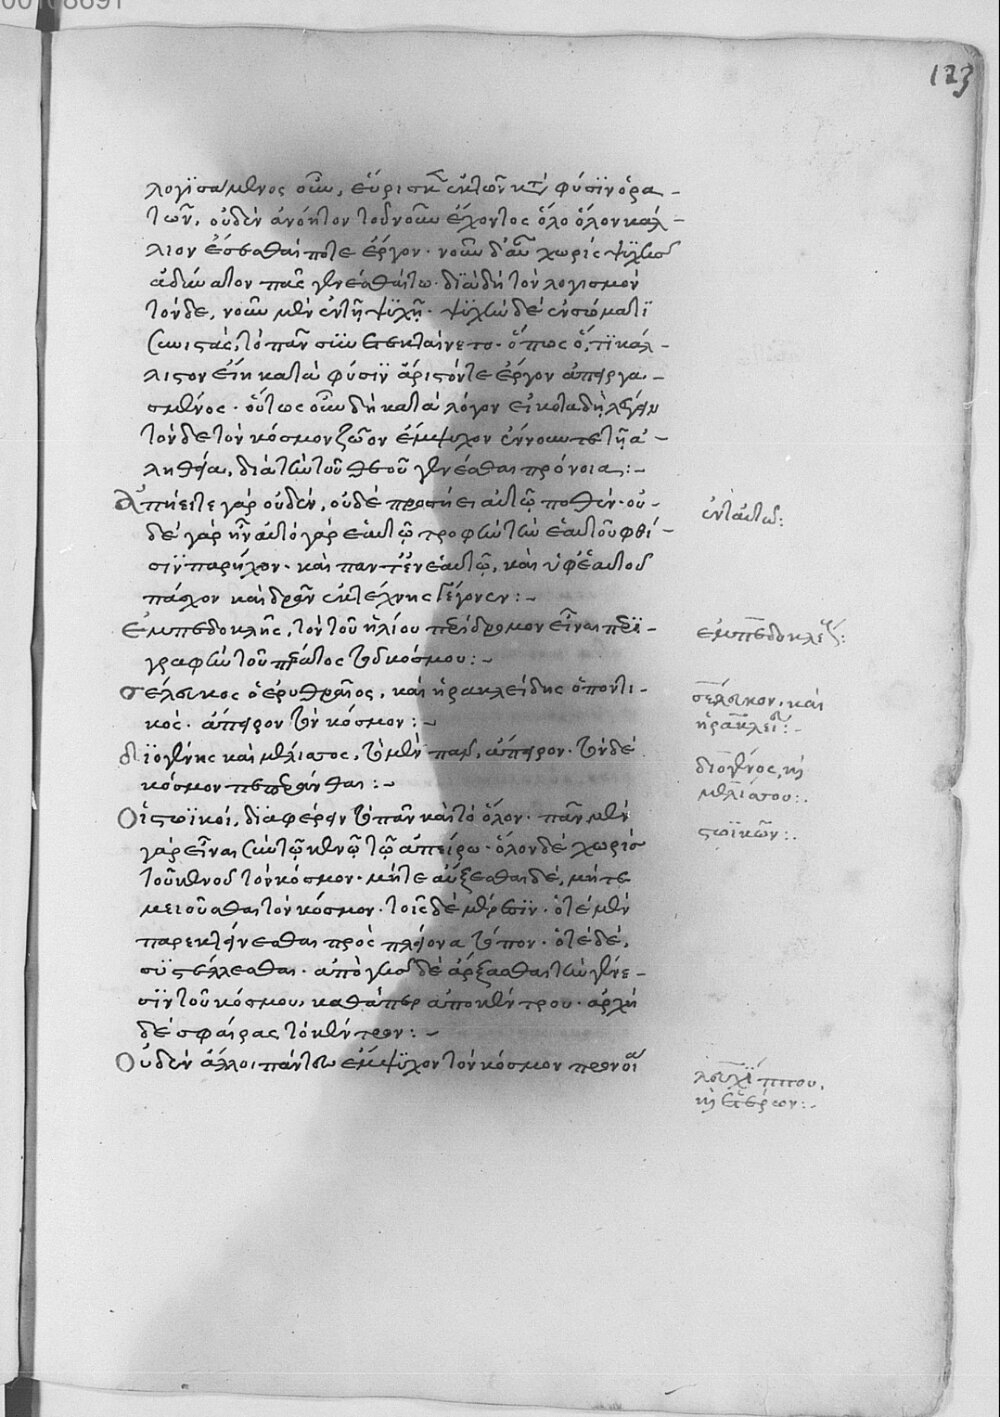 00108691
123
λογϊσάμενος οὖν, εὕρισκεν ἐκ τῶν κατὰ φύσϊν ὁρα-
τῶν, οὐδὲν ἀνόητον τοῦ νοῦν ἔχοντος ὅλο ὅλον καλ-
λιον ἔσεσθαί ποτε ἔργον· νοῦν δ' αὖ χωρὶς ψϋχῆσ
ἀδύνατον παρ γενέσθαι τω· δϊὰ δὴ τὸν λογισμὸν
τόνδε, νοῦν μὲν ἐν τῇ ψϋχῇ· ψϋχὴν δὲ ἐν σώματϊ
συνιστὰς, τὸ πᾶν σϋνετεκταίνετο· ὅπως ὅ,τϊ καλ-
λιστον εἴη κατὰ φύσϊν ἄριστόν τε ἔργον ἀπειργα-
σμένος· οὕτως οὖν δὴ κατὰ λόγον εἰκότα δὴ λέγειν
τόνδε τὸν κόσμον ζῶον ἔμψυχον ἔννουν τε τῇ ἀ-
ληθείᾳ, διὰ τὴν τοῦ θεοῦ γενέσθαι πρόνοιαν:-
Ἀπήειτε γὰρ οὐδὲν, οὐδὲ προσήει αὐτῷ ποθὲν· οὐ-
δὲ γὰρ ἦν αὐτὸ γὰρ ἑαυτῷ τροφὴν τὴν ἑαυτοῦ φθί-
σϊν παρῆχον· καὶ παντ' ἐν ἑαυτῷ, καὶ ὑφ' ἑαυτοῦ
πάσχον καὶ δρῶν ἐκ τέχνης γέγονεν:-
Ἐμπεδοκλῆς, τὸν τοῦ ἡλίου περίδρομον εἶναι περϊ-
γραφὴν τοῦ πέρατος τοῦ κόσμου:-
Σέλευκος ὁ ἐρυθραῖος, καὶ ἡρακλείδης ὁ ποντι-
κὸς· ἄπειρον τὸν κόσμον:-
Δϊογένης καὶ μέλισσος, τὸ μὲν πᾶν, ἄπειρον· τὸν δὲ
κόσμον πεπεράνθαι:-
Οἱ στωϊκοί, δϊαφέρειν τὸ πᾶν καὶ τὸ ὅλον· πᾶν μὲν
γὰρ εἶναι σὺν τῷ κενῷ τῷ ἀπείρω· ὅλον δὲ χωρὶς
τοῦ κενοῦ τὸν κόσμον· μήτε αὔξεσθαι δέ, μήτε
μειοῦσθαι τὸν κόσμον· τοῖς δὲ μέρεσϊν· ὁτὲ μὲν
παρεκτείνεσθαι πρὸς πλείονα τόπον· ὁτὲ δέ,
συστέλλεσθαι· ἀπὸ γῆσ δὲ ἄρξασθαι τὴν γένε-
σϊν τοῦ κόσμου, καθάπερ ἀπὸ κέντρου· ἀρχὴ
δὲ σφαίρας τὸ κέντρον:-
Οὐδὲν ἄλλοι πάντων ἔμψϋχον τὸν κόσμον προνοί
ἐν ταὐτῶ:
ἐμπεδοκλέους:
σελεύκου, καὶ
ἡρακλείδου:-
διογένους, καὶ
μελίσσου:.
στωϊκῶν:.
λευκϊππου,
καὶ ἑτέρων:.